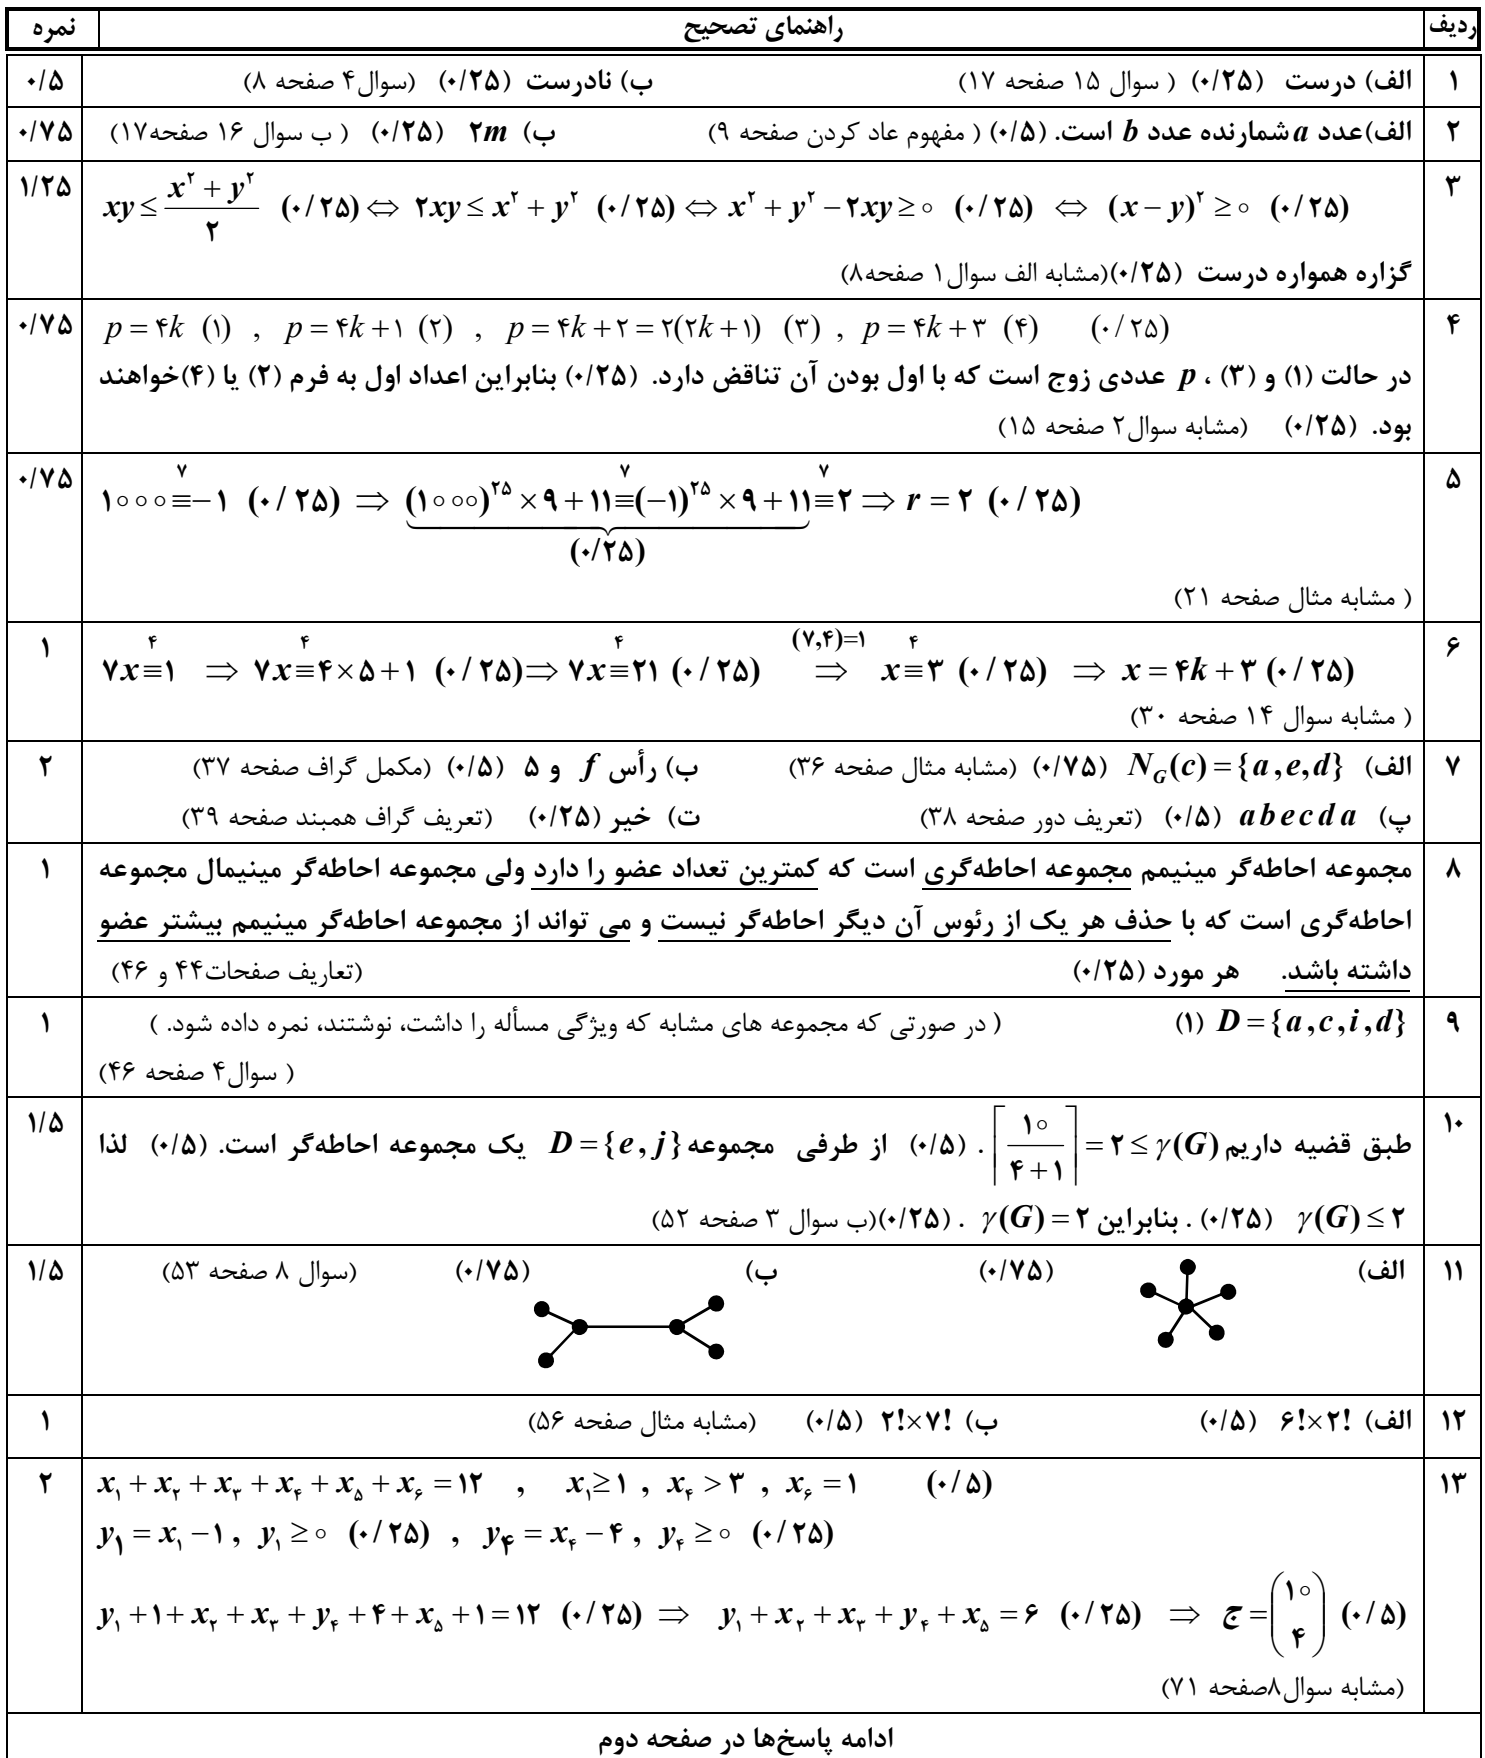 ردیف راهنمای تصحیح نمره
۱ الف) درست (۰/۲۵) ( سوال ۱۵ صفحه ۱۷) ب) نادرست (۰/۲۵) (سوال۴ صفحه ۸) ۰/۵
۲ الف)عدد a شمارنده عدد b است. (۰/۵) ( مفهوم عاد کردن صفحه ۹) ب) ۲m (۰/۲۵) ( ب سوال ۱۶ صفحه۱۷) ۰/۷۵
۳ xy ≤ (x² + y²)/۲ (۰/۲۵) ⇔ ۲xy ≤ x² + y² (۰/۲۵) ⇔ x² + y² − ۲xy ≥ ۰ (۰/۲۵) ⇔ (x − y)² ≥ ۰ (۰/۲۵) ۱/۲۵
گزاره همواره درست (۰/۲۵)(مشابه الف سوال۱ صفحه۸)
۴ p = ۴k (۱) , p = ۴k + ۱ (۲) , p = ۴k + ۲ = ۲(۲k + ۱) (۳) , p = ۴k + ۳ (۴) (۰/۲۵) ۰/۷۵
در حالت (۱) و (۳) ، p عددی زوج است که با اول بودن آن تناقض دارد. (۰/۲۵) بنابراین اعداد اول به فرم (۲) یا (۴)خواهند
بود. (۰/۲۵) (مشابه سوال۲ صفحه ۱۵)
۵ ۱۰۰۰ ≡⁷ −۱ (۰/۲۵) ⇒ (۱۰۰۰)^۲۵ × ۹ + ۱۱ ≡⁷ (−۱)^۲۵ × ۹ + ۱۱ ≡⁷ ۲ ⇒ r = ۲ (۰/۲۵) ۰/۷۵
(۰/۲۵)
( مشابه مثال صفحه ۲۱)
۶ ۷x ≡⁴ ۱ ⇒ ۷x ≡⁴ ۴×۵+۱ (۰/۲۵) ⇒ ۷x ≡⁴ ۲۱ (۰/۲۵) (۷,۴)=۱ ⇒ x ≡⁴ ۳ (۰/۲۵) ⇒ x = ۴k + ۳ (۰/۲۵) ۱
( مشابه سوال ۱۴ صفحه ۳۰)
۷ الف) N_G(c) = {a, e, d} (۰/۷۵) (مشابه مثال صفحه ۳۶) ب) رأس f و ۵ (۰/۵) (مکمل گراف صفحه ۳۷) ۲
پ) abecda (۰/۵) (تعریف دور صفحه ۳۸) ت) خیر (۰/۲۵) (تعریف گراف همبند صفحه ۳۹)
۸ مجموعه احاطه‌گر مینیمم مجموعه احاطه‌گری است که کمترین تعداد عضو را دارد ولی مجموعه احاطه‌گر مینیمال مجموعه ۱
احاطه‌گری است که با حذف هر یک از رئوس آن دیگر احاطه‌گر نیست و می تواند از مجموعه احاطه‌گر مینیمم بیشتر عضو
داشته باشد. هر مورد (۰/۲۵) (تعاریف صفحات۴۴ و ۴۶)
۹ D = {a, c, i, d} (۱) ( در صورتی که مجموعه های مشابه که ویژگی مسأله را داشت، نوشتند، نمره داده شود. ) ۱
( سوال۴ صفحه ۴۶)
۱۰ طبق قضیه داریم ⌈۱۰/(۴+۱)⌉ = ۲ ≤ γ(G) . (۰/۵) از طرفی مجموعه D = {e, j} یک مجموعه احاطه‌گر است. (۰/۵) لذا ۱/۵
γ(G) ≤ ۲ (۰/۲۵) . بنابراین γ(G) = ۲ . (۰/۲۵)(ب سوال ۳ صفحه ۵۲)
۱۱ الف) (۰/۷۵) ب) (۰/۷۵) (سوال ۸ صفحه ۵۳) ۱/۵
۱۲ الف) ۶!×۲! (۰/۵) ب) ۲!×۷! (۰/۵) (مشابه مثال صفحه ۵۶) ۱
۱۳ x₁ + x₂ + x₃ + x₄ + x₅ + x₆ = ۱۲ , x₁ ≥ ۱ , x₄ > ۳ , x₆ = ۱ (۰/۵) ۲
y₁ = x₁ − ۱ , y₁ ≥ ۰ (۰/۲۵) , y₄ = x₄ − ۴ , y₄ ≥ ۰ (۰/۲۵)
y₁ + ۱ + x₂ + x₃ + y₄ + ۴ + x₅ + ۱ = ۱۲ (۰/۲۵) ⇒ y₁ + x₂ + x₃ + y₄ + x₅ = ۶ (۰/۲۵) ⇒ ج = (۱۰ ۴) (۰/۵)
(مشابه سوال۸صفحه ۷۱)
ادامه پاسخ‌ها در صفحه دوم